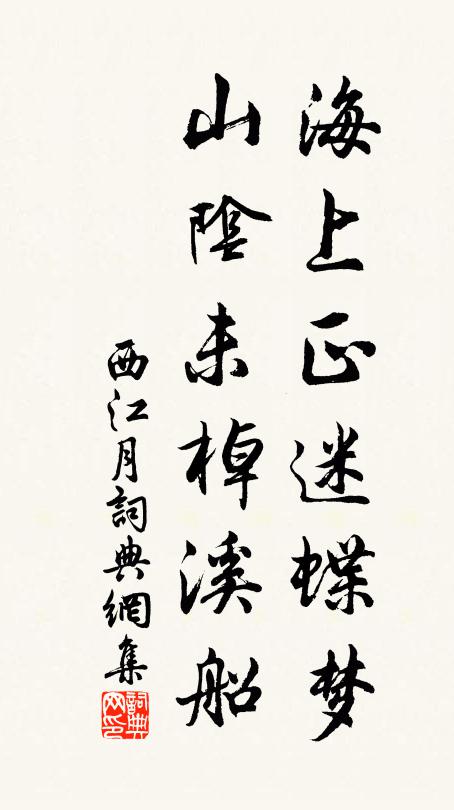 海上正迷蝶梦
山陰未棹溪船
西江月詞典網集
詞典网印